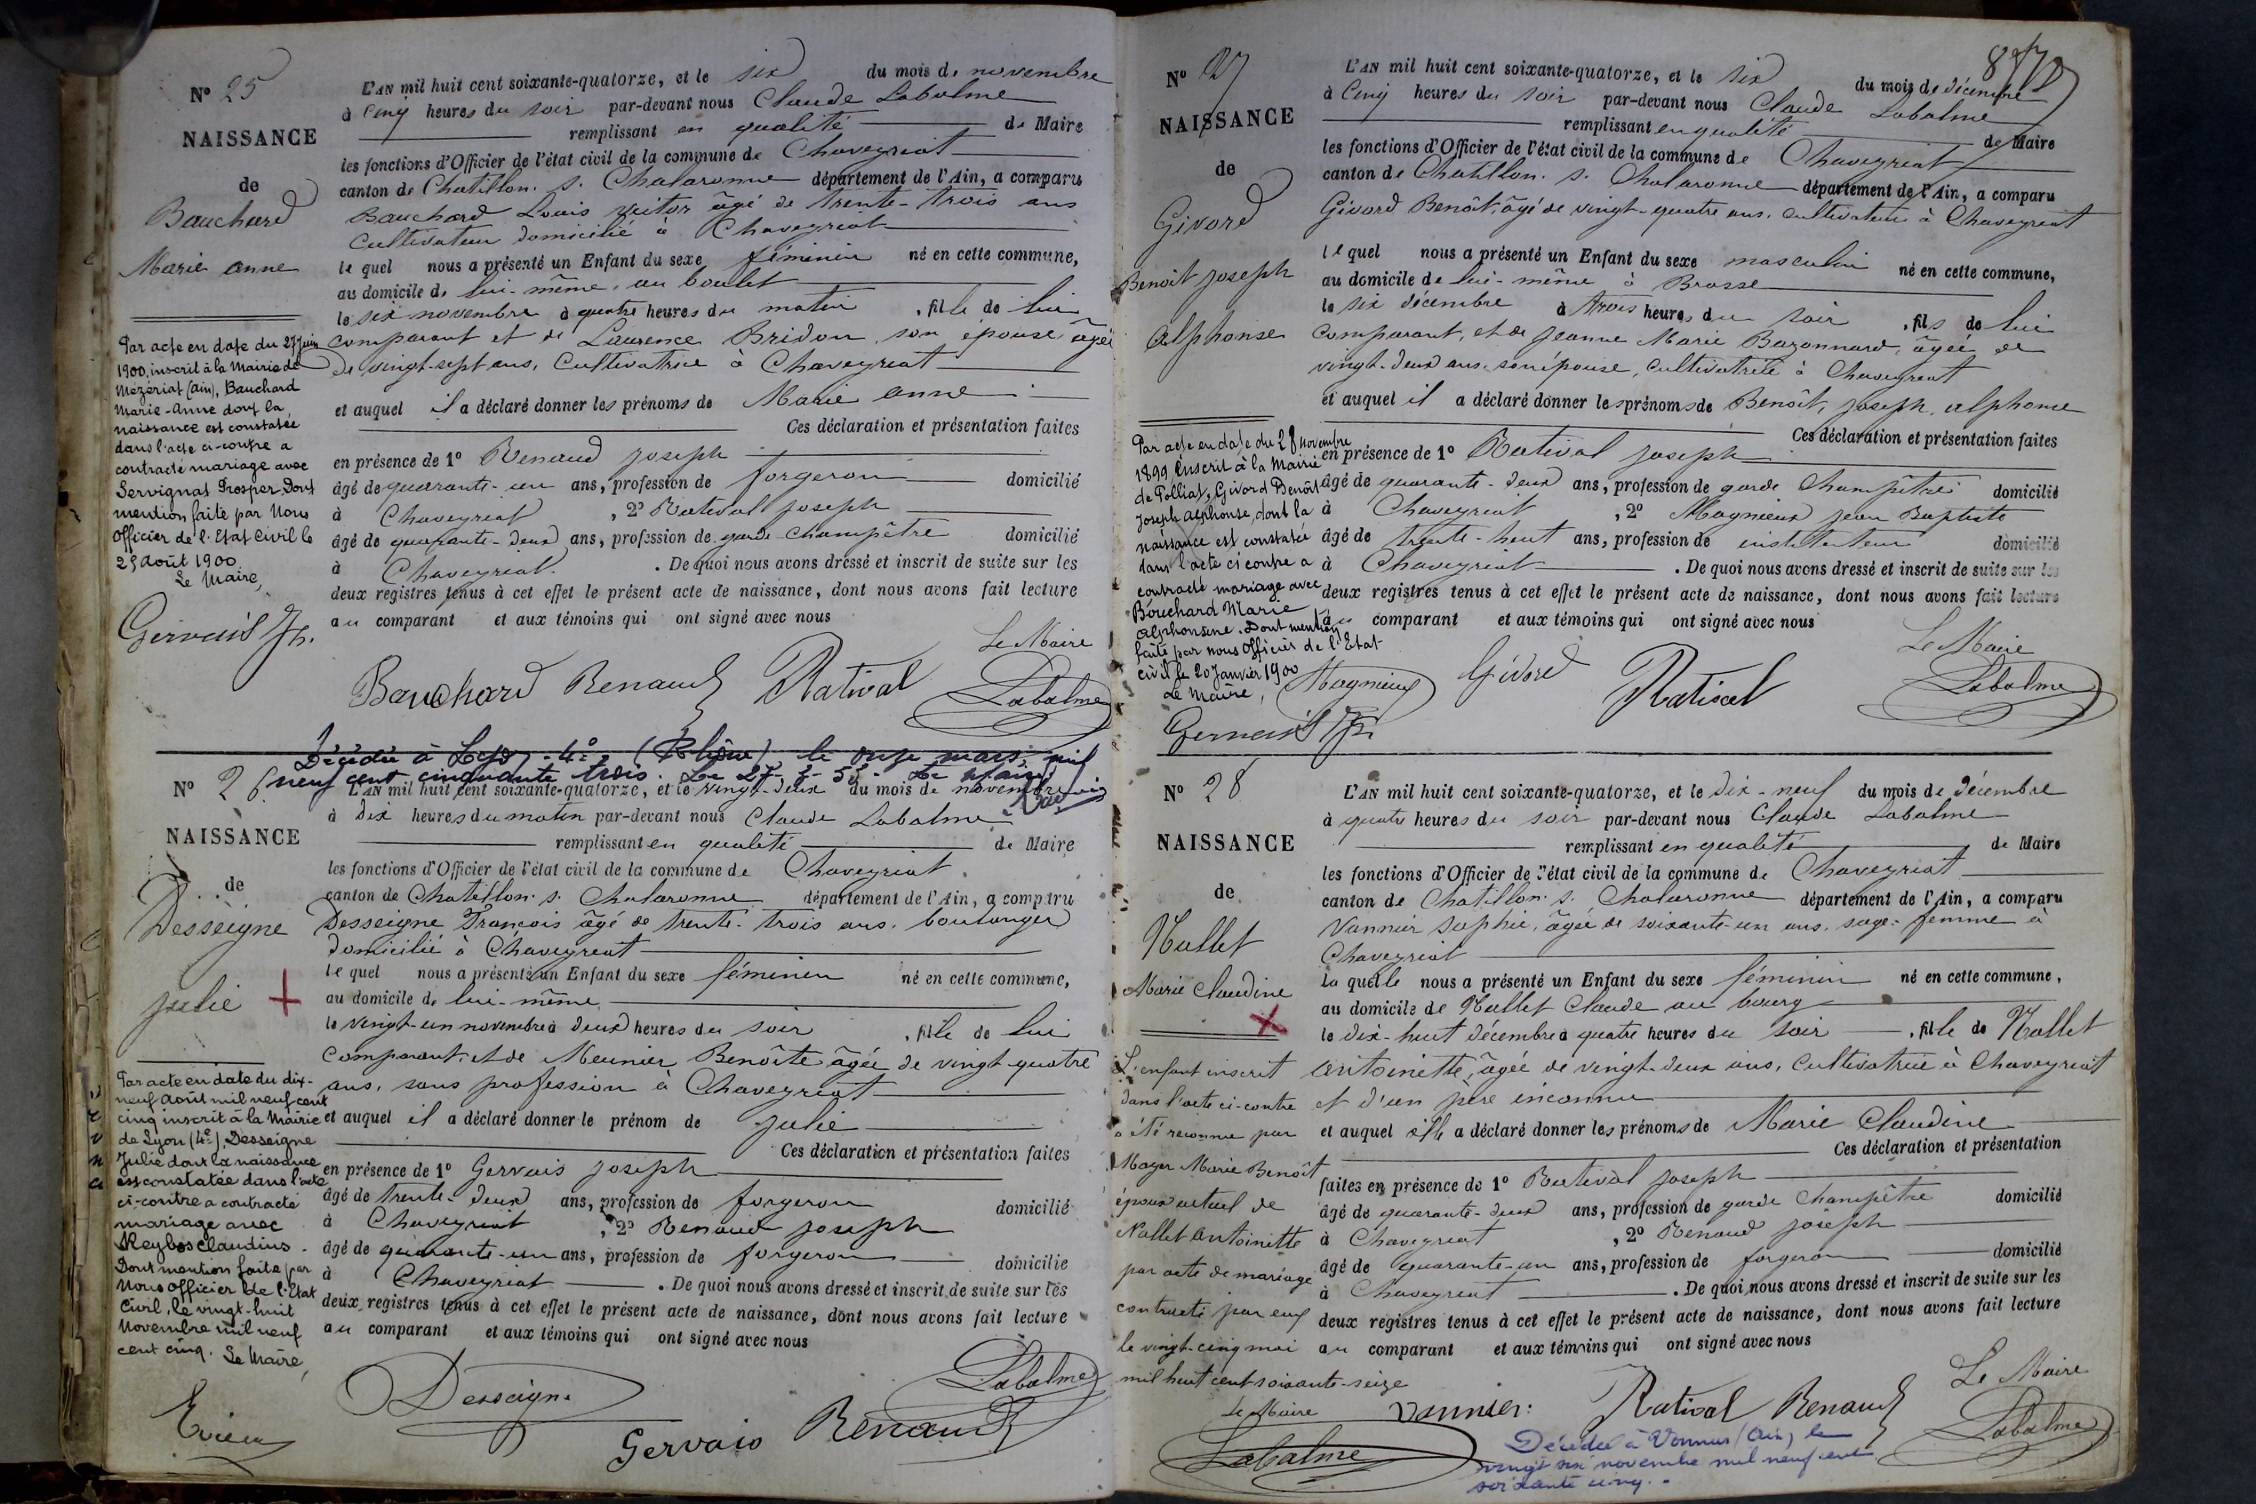 N° 25
NAISSANCE
de
Bauchard
Marie anne
Par acte en date du 27 Juin
1900, inscrit à la Mairie de
Mézériat (Ain), Bauchard
Marie-Anne dont la
naissance est constatée
dans l'acte ci-contre a
contracté mariage avec
Servignat Prosper. Dont
mention faite par Nous
Officier de l'Etat Civil le
25 Août 1900
Le Maire,
Gervais Jh.
L'AN mil huit cent soixante-quatorze, et le six du mois de novembre
à Cinq heures du soir par-devant nous Claude Labalme
remplissant en qualité de Maire
les fonctions d'Officier de l'état civil de la commune de Chaveyriat
canton de Chatillon. s. Chalaronne département de l'Ain, a comparu
Bauchard Louis Victor âgé de trente-trois ans
Cultivateur domicilié à Chaveyriat
le quel nous a présenté un Enfant du sexe féminin né en cette commune,
au domicile de lui-même, au boulet
le six novembre à quatre heures du matin , fille de lui
comparant et de Laurence Bridon son epouse âgée
de vingt-sept ans, Cultivatrice à Chaveyriat
et auquel il a déclaré donner les prénoms de Marie anne
Ces déclaration et présentation faites
en présence de 1° Renaud joseph
âgé de quarante-un ans, profession de forgeron domicilié
à Chaveyriat , 2° Rativol joseph
âgé de quarante-deux ans, profession de garde-champêtre domicilié
à Chaveyriat . De quoi nous avons dressé et inscrit de suite sur les
deux registres tenus à cet effet le présent acte de naissance, dont nous avons fait lecture
au comparant et aux témoins qui ont signé avec nous
Le Maire
Bauchard Renaud Rativol Labalme
Décédée à Lyon 4e (Rhône) le onze mars mil
neuf cent cinquante trois. Le Maire
N° 26
NAISSANCE
de
Desseigne
julie
Par acte en date du dix-
neuf Août mil neuf cent
cinq inscrit à la Mairie
de Lyon (4e) Desseigne
Julie dont la naissance
est constatée dans l'acte
ci-contre a contracté
mariage avec
Claudius.
Dont mention faite par
Nous Officier de l'Etat
Civil, le vingt-huit
Novembre mil neuf
cent cinq. Le Maire,
L'AN mil huit cent soixante-quatorze, et le vingt-deux du mois de novembre
à dix heures du matin par-devant nous Claude Labalme
remplissant en qualité de Maire
les fonctions d'Officier de l'état civil de la commune de Chaveyriat
canton de Chatillon. s. Chalaronne département de l'Ain, a comparu
Desseigne François âgé de trente-trois ans, boulanger
domicilié à Chaveyriat
le quel nous a présenté un Enfant du sexe féminin né en cette commune,
au domicile de lui-même
le vingt-un novembre à deux heures du soir , fille de lui
comparant et de Meunier Benoîte âgée de vingt-quatre
ans, sans profession à Chaveyriat
et auquel il a déclaré donner le prénom de julie
Ces déclaration et présentation faites
en présence de 1° Gervais joseph
âgé de trente-deux ans, profession de forgeron domicilié
à Chaveyriat , 2° Renaud joseph
âgé de quarante-un ans, profession de forgeron domicilié
à Chaveyriat . De quoi nous avons dressé et inscrit de suite sur les
deux registres tenus à cet effet le présent acte de naissance, dont nous avons fait lecture
au comparant et aux témoins qui ont signé avec nous
Desseigne Gervais Renaud Labalme
N° 27
NAISSANCE
de
Givord
Benoît joseph
alphonse
Par acte en date du 28 novembre
1899 inscrit à la Mairie
de Polliat, Givord Benoît
Joseph Alphonse, dont la
naissance est constatée
dans l'acte ci contre a
contracté mariage avec
Bouchard Marie
Alphonsine. Dont mention
faite par nous Officier de l'Etat
civil le 20 Janvier 1900
Le Maire,
Gervais Jh
L'AN mil huit cent soixante-quatorze, et le six du mois de décembre
à Cinq heures du soir par-devant nous Claude Labalme
remplissant en qualité de Maire
les fonctions d'Officier de l'état civil de la commune de Chaveyriat
canton de Chatillon. s. Chalaronne département de l'Ain, a comparu
Givord Benoît, âgé de vingt-quatre ans, cultivateur à Chaveyriat
le quel nous a présenté un Enfant du sexe masculin né en cette commune,
au domicile de lui-même à Brosse
le six décembre à trois heures du soir , fils de lui
comparant, et de jeanne Marie Bazonnard, âgée de
vingt-deux ans, son épouse, cultivatrice à Chaveyriat
et auquel il a déclaré donner les prénoms de Benoît, joseph, alphonse
Ces déclaration et présentation faites
en présence de 1° Rativol joseph
âgé de quarante-deux ans, profession de garde Champêtre domicilié
à Chaveyriat , 2° Magnieux jean Baptiste
âgé de trente-huit ans, profession de instituteur domicilié
à Chaveyriat . De quoi nous avons dressé et inscrit de suite sur les
deux registres tenus à cet effet le présent acte de naissance, dont nous avons fait lecture
au comparant et aux témoins qui ont signé avec nous
Le Maire
Magnieux Givord Rativol Labalme
N° 28
NAISSANCE
de
Nallet
Marie Claudine
L'enfant inscrit
dans l'acte ci-contre
a été reconnu par
Mayer Marie Benoît
époux actuel de
Nallet Antoinette
par acte de mariage
contracté par eux
le vingt-cinq mai
mil huit cent soixante-seize
Le Maire
Labalme
L'AN mil huit cent soixante-quatorze, et le dix-neuf du mois de décembre
à quatre heures du soir par-devant nous Claude Labalme
remplissant en qualité de Maire
les fonctions d'Officier de l'état civil de la commune de Chaveyriat
canton de Chatillon. s. Chalaronne département de l'Ain, a comparu
Vannier Sophie, âgée de soixante-un ans, sage-femme à
Chaveyriat
La quelle nous a présenté un Enfant du sexe féminin né en cette commune,
au domicile de Nallet Claude au bourg
le dix-huit décembre à quatre heures du soir , fille de Nallet
antoinette, âgée de vingt-deux ans, Cultivatrice à Chaveyriat
et d'un père inconnu
et auquel elle a déclaré donner les prénoms de Marie Claudine
Ces déclaration et présentation
faites en présence de 1° Rativol joseph
âgé de quarante-deux ans, profession de garde champêtre domicilié
à Chaveyriat , 2° Renaud joseph
âgé de quarante-un ans, profession de forgeron domicilié
à Chaveyriat . De quoi nous avons dressé et inscrit de suite sur les
deux registres tenus à cet effet le présent acte de naissance, dont nous avons fait lecture
au comparant et aux témoins qui ont signé avec nous
Le Maire
Vannier Rativol Renaud Labalme
Décédée à Vonnas (Ain) le
vingt six novembre mil neuf cent
soixante cinq.